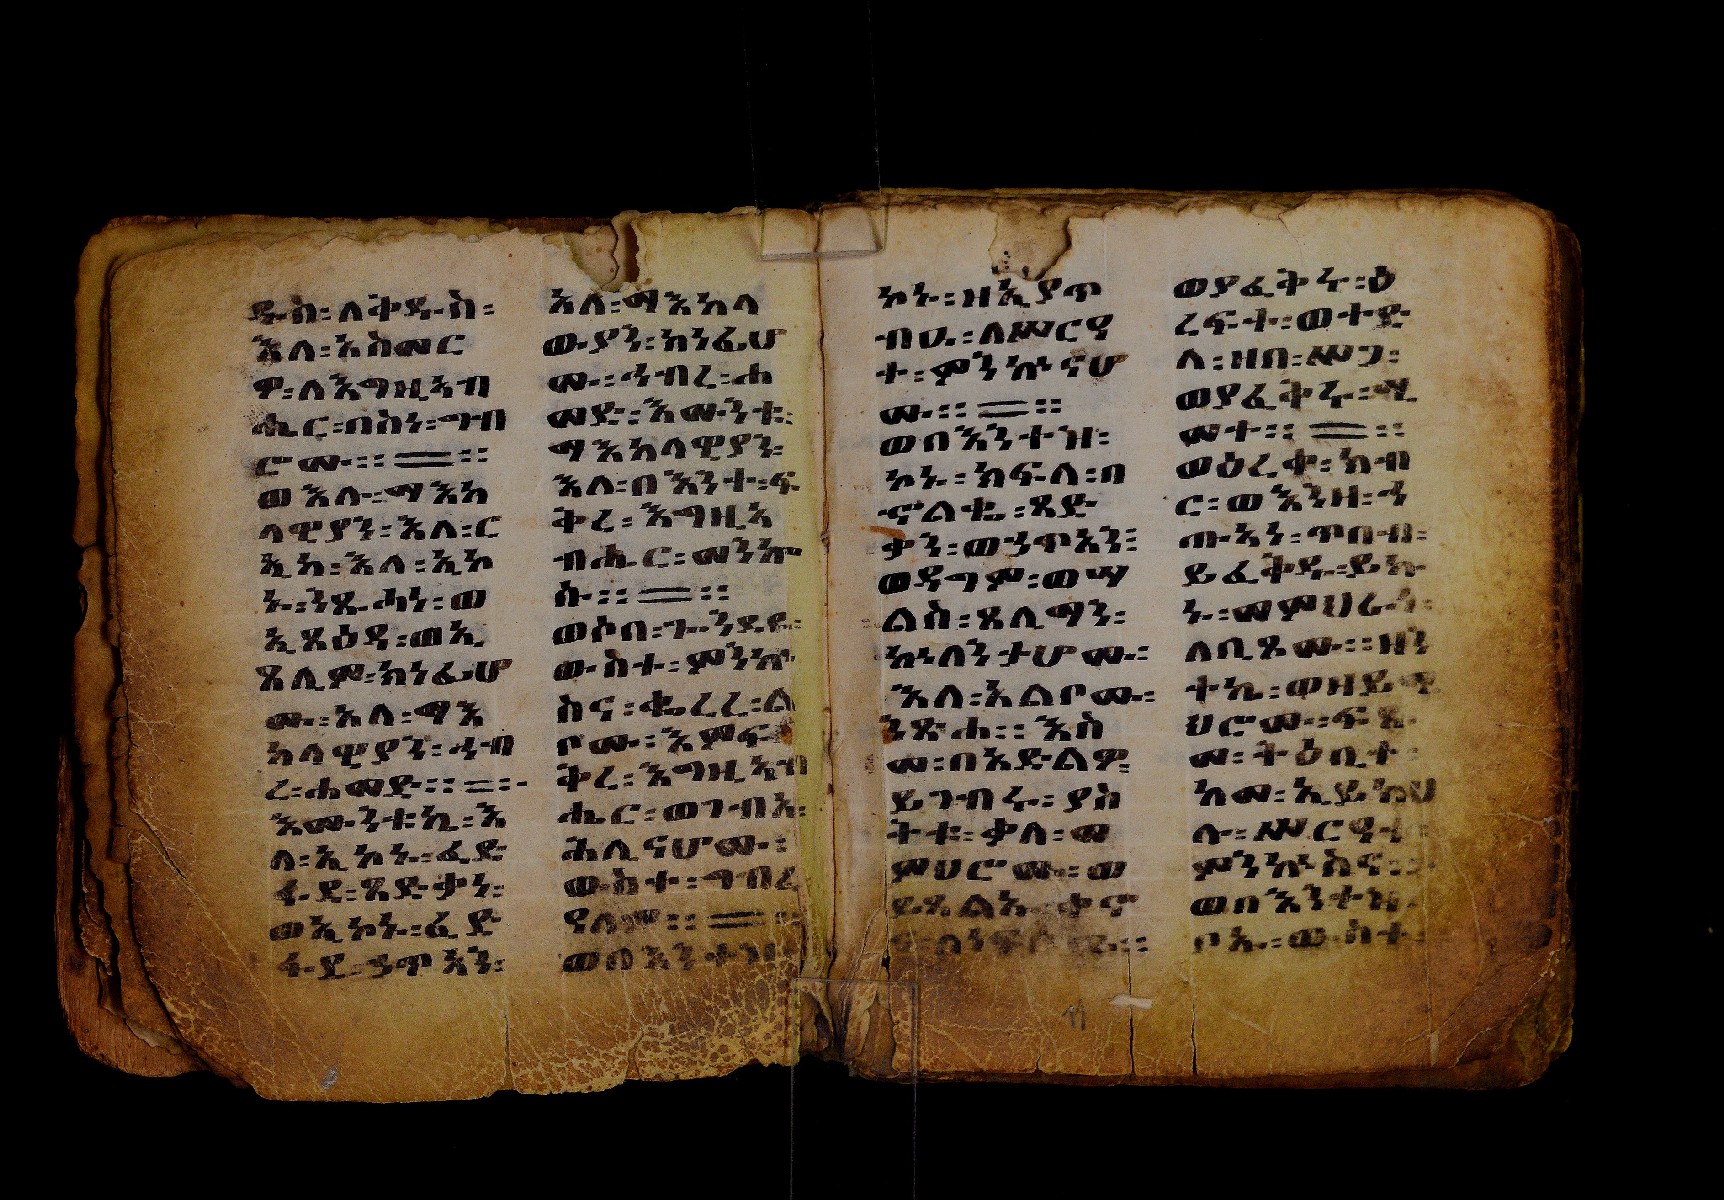 ዱስ፡ ለቅዱስ፡
እለ፡ አስመር
ዎ፡ ለእግዚአብ
ሔር፡ በስነ፡ ግብ
ሮሙ። = ።
ወእሉ፡ ማእከ
ላዊያን፡ እለ፡ ር
ኢከ፡ እለ፡ ኢኮ
ኑ፡ ንጹሐነ፡ ወ
ኢጸዕዳ፡ ወኢ
ጸሊም፡ ክነፊሆ
ሙ፡ እለ፡ ማእ
ከላዊያን፡ ኅብ
ረ፡ ሐመድ። = ።
እሙንቱኬ፡ እ
ለ፡ ኢኮኑ፡ ፈድ
ፋደ፡ ጻድቃነ፡
ወኢኮኑ፡ ፈድ
ፋደ፡ ኃጥአን፡
እለ፡ ማእከላ
ውያን፡ ክነፊሆ
ሙ፡ ኅብረ፡ ሐ
መድ፡ እሙንቱ፡
ማእከላዊያን፡
እለ፡ በእንተ፡ ፍ
ቅረ፡ እግዚአ
ብሔር፡ መንኮ
ሱ። = ።
ወሶበ፡ ጐንደዩ፡
ውስተ፡ ምንኩ
ስና፡ ቈረረ፡ ል
ቦሙ፡ እምፍ
ቅረ፡ እግዚአብ
ሔር፡ ወገብአ፡
ሕሊናሆሙ፡
ውስተ፡ ግብረ
ዓለም። = ።
ወበእንተዝ፡
ኮኑ፡ ዘኢያጥ
ብዑ፡ ለሥርዓ
ተ፡ ምንኩናሆ
ሙ። = ።
ወበእንተዝ፡
ኮኑ፡ ክፍለ፡ በ
ኖልቈ፡ ጻድ
ቃን፡ ወኃጥአን፡
ወዳግም፡ ወሣ
ልስ፡ ጸሊማን፡
ኵለንታሆሙ፡
እለ፡ አልቦሙ፡
ንጽሐ። እስ
መ፡ በአድልዎ፡
ይገብሩ፡ ያስ
ትቱ፡ ቃለ፡ መ
ምህሮሙ፡ ወ
ይጸልኡ፡ ቀኖ
ና፡ ለነፍሶሙ።
ወያፈቅሩ፡ ዕ
ረፍተ፡ ወተድ
ለ፡ ዘበ፡ ሥጋ፡
ወያፈቅሩ፡ ሢ
መተ። = ።
ወዕረቀ፡ ክብ
ር፡ ወእንዘ፡ ኅ
ጡአን፡ ጥበብ፡
ይፈቅዱ፡ ይኩ
ኑ፡ መምህራነ፡
ለቢጾሙ። ዘን
ተኬ፡ ወዘይጥ
ህሮሙ፡ ፍጹ
መ፡ ትዕቢተ፡
ከመ፡ ኢይክህ
ሉ፡ ሥርዓተ፡
ምንኩስና፡
ወበእንተዝ፡
ቦኡ፡ ውስተ፡